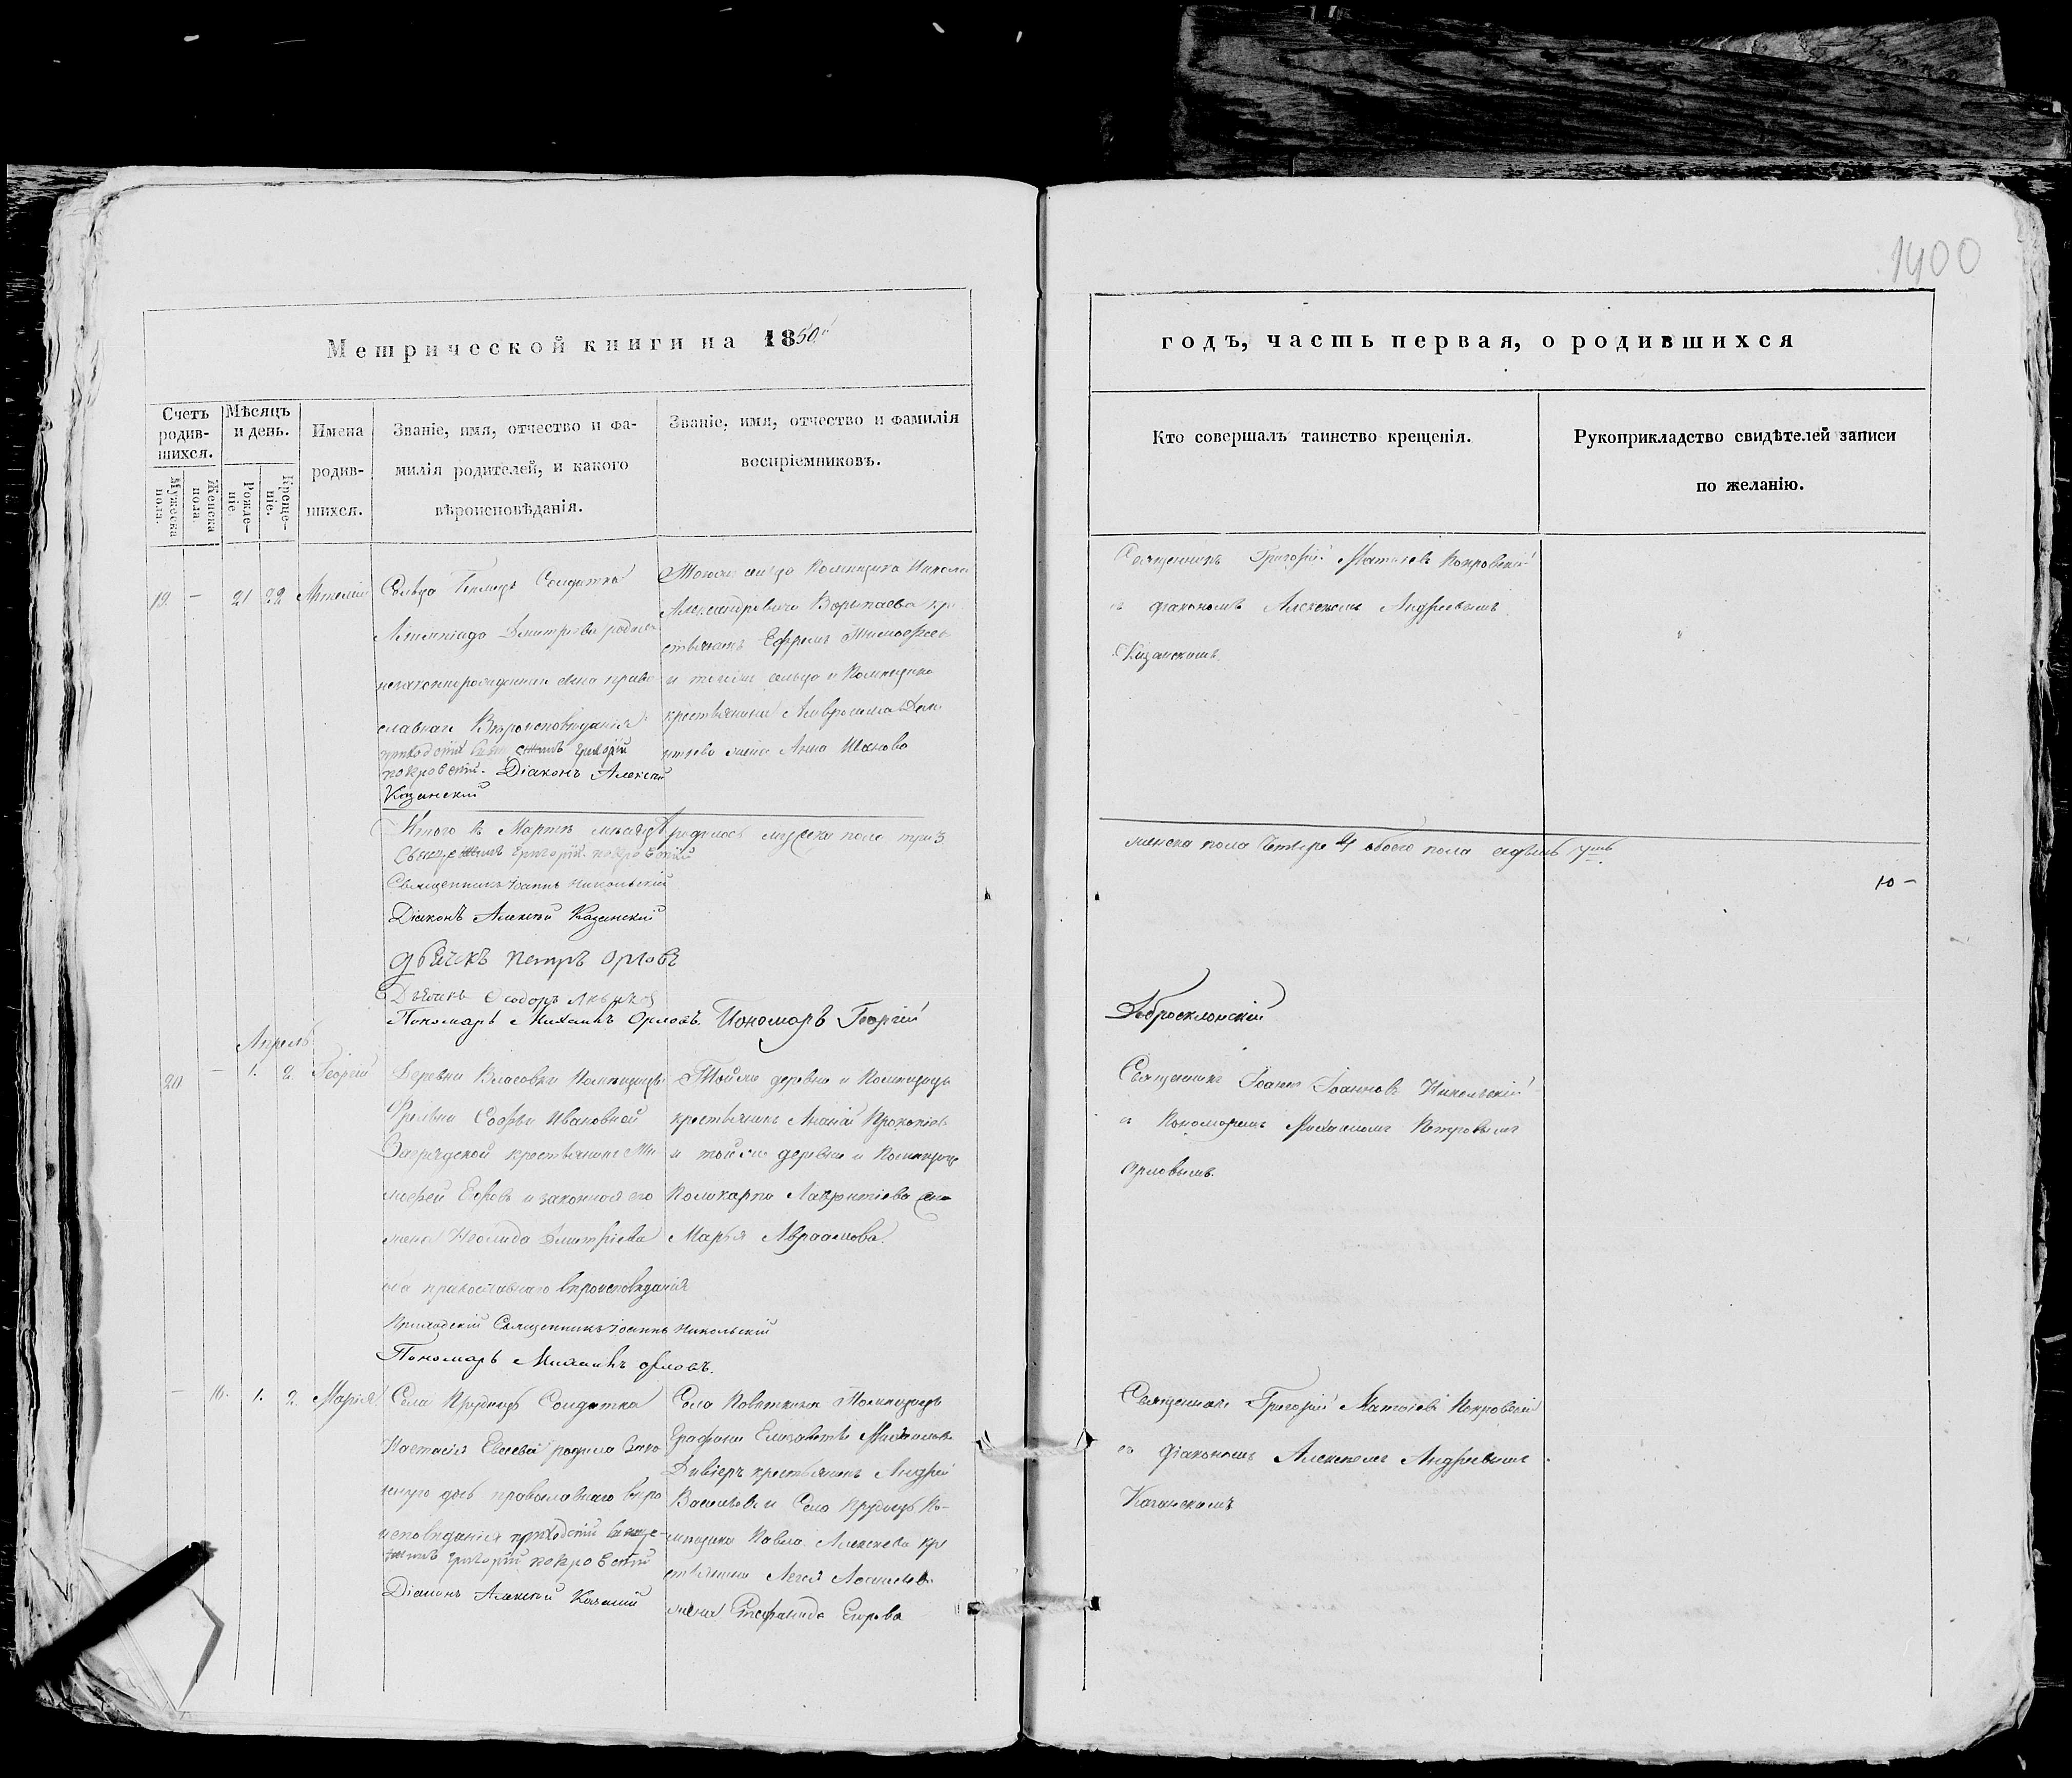 1900
Метрической книги на 1850й
годъ, часть первая, о родившихся
Счетъ родив-
шихся.
Мѣсяцъ
и день.
Имена
родив-
шихся.
Званіе, имя, отчество и фа-
милія родителей, и какого
вѣроисповѣданія.
Званіе, имя, отчество и фамилія
воспріемниковъ.
Мужеска
пола.
Женска
пола.
Рожде-
ніе.
Креще-
ніе.
Кто совершалъ таинство крещенія.
Рукоприкладство свидѣтелей записи
по желанію.
19. — 21 22
Сельца Солдатка
Дмитріева родила
незаконнорожденнаго сына право
славнаго Вѣроисповѣданія
приходскій Григорій
покровскій. Діаконъ Алексѣй
Казанскій
Тогоже сельца Помещика Николая
Александровича кре
стьянинъ Ефремъ Тимофеев
и тогоже сельца и Помещика
крестьянина Амвросима
жена Анна Иванова
Священникъ Григорій Матвѣевъ Покровскій
съ діакономъ Алексѣемъ Андреевымъ
Казанскимъ.
Итого въ Мартѣ мѣсяцѣ родилось мужска пола три 3.
женска пола четыре 4 обоего пола седьмь 7мь
10 —
Священникъ Григорій покровскій
Священникъ Іоаннъ Никольскій
Діаконъ Алексѣй Казанскій
дьячекъ петръ орловъ
Дьячекъ Ѳеодоръ
Пономарь Михаилъ Орловъ. Пономарь Георгій
Доброклонскій
Апрель
20 — 1. 2. Георгій
Деревни Власовки Помещицы
Софьи Ивановной
Загряской крестьянинъ
Ефровъ и законная его
жена Дмитріева
оба православнаго вѣроисповѣданія
Приходскій Священникъ Іоаннъ Никольскій
Пономарь Михаилъ орловъ.
Тойже деревни и Помещицы
крестьянинъ Ананій Прокопіев
и тойже деревни и Помещицы
Поликарпа Лаврентіева жена
Марья Авраамова.
Священникъ Іоаннъ Іоанновъ Никольскій
съ Пономаремъ Михаиломъ Петровымъ
Орловымъ.
— 16. 1. 2. Марія
Села Прудищъ Солдатка
Настасія Евсеева родила
дочь православнаго вѣро
исповѣданія приходскій священ-
никъ Григорій покровскій
Діаконъ Алексѣй Казанскій
Села Помещицы
Графини Елизаветы Михаиловн
Дивіеръ крестьянинъ Андрей
Васильевъ и Села Прудищъ По-
мещика Павла Алексеева кре
стьянина
жена Стефанида Егорова
Священникъ Григорій Матвѣевъ Покровскій
съ діакономъ Алексѣемъ Андреевымъ
Казанскимъ